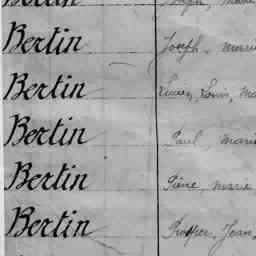 Bertin Joseph, marie
Bertin Joseph, marie
Bertin Louis, Ma
Bertin Paul, marie
Bertin Pierre, marie
Bertin Prosper, Jean,